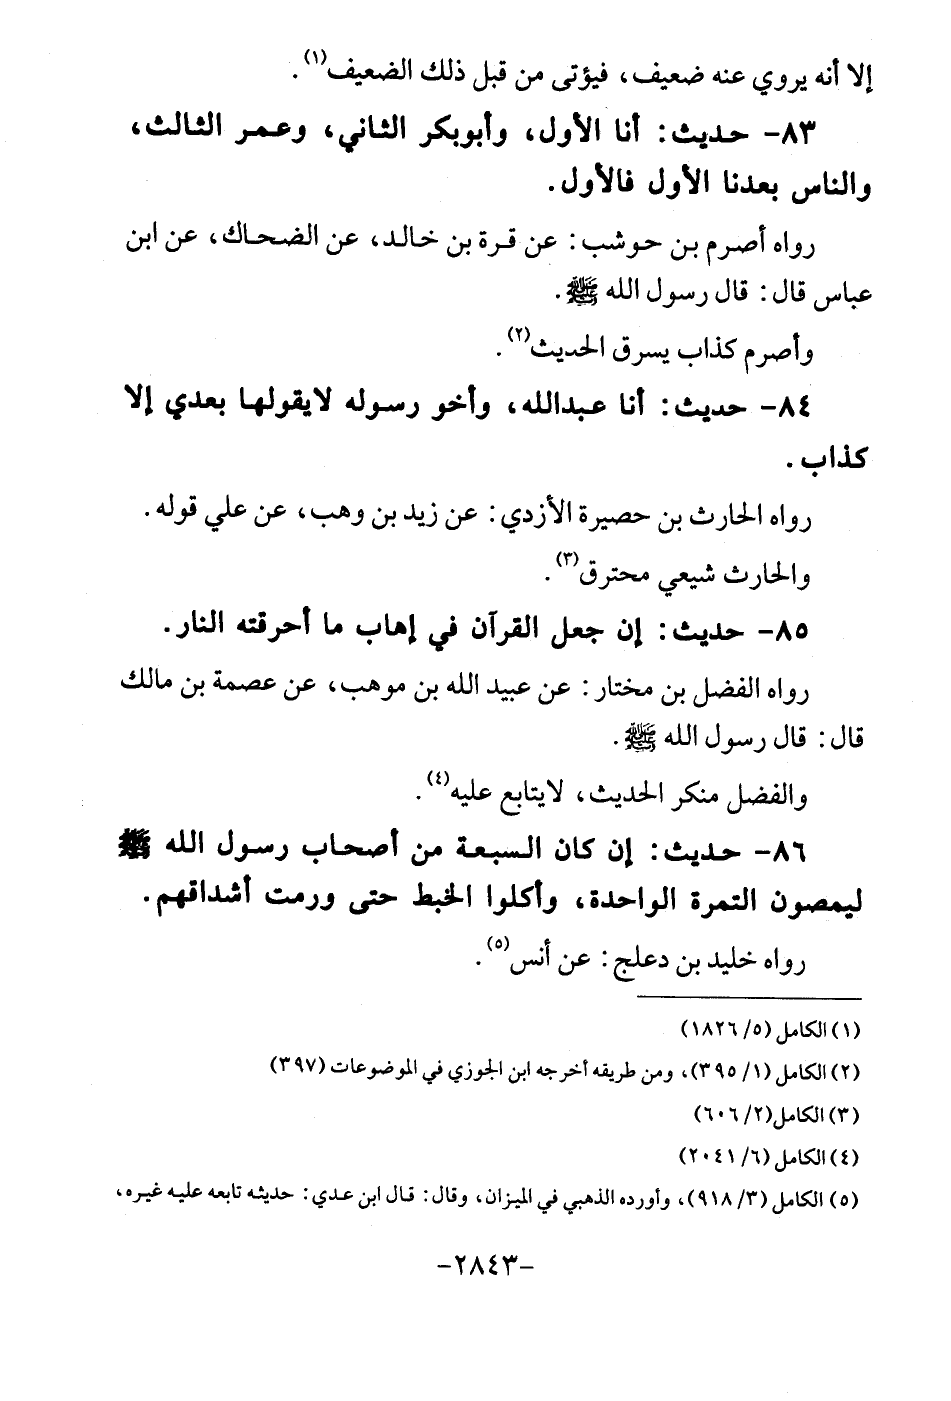 إلا أنه يروي عنه ضعيف، فيؤتى من قبل ذلك الضعيف(١).
٨٣- حديث: أنا الأول، وأبوبكر الثاني، وعمر الثالث،
والناس بعدنا الأول فالأول.
رواه أصرم بن حوشب: عن قرة بن خالد، عن الضحاك، عن ابن
عباس قال: قال رسول الله ﷺ.
وأصرم كذاب يسرق الحديث(٢).
٨٤- حديث: أنا عبدالله، وأخو رسوله لايقولها بعدي إلا
كذاب.
رواه الحارث بن حصيرة الأزدي: عن زيد بن وهب، عن علي قوله.
والحارث شيعي محترق(٣).
٨٥- حديث: إن جعل القرآن في إهاب ما أحرقته النار.
رواه الفضل بن مختار: عن عبيد الله بن موهب، عن عصمة بن مالك
قال: قال رسول الله ﷺ.
والفضل منكر الحديث، لايتابع عليه(٤).
٨٦- حديث: إن كان السبعة من أصحاب رسول الله ﷺ
ليمصون التمرة الواحدة، وأكلوا الخبط حتى ورمت أشداقهم.
رواه خليد بن دعلج: عن أنس(٥).
(١) الكامل (٥/ ١٨٢٦)
(٢) الكامل (١/ ٣٩٥)، ومن طريقه أخرجه ابن الجوزي في الموضوعات (٣٩٧)
(٣) الكامل(٢/ ٦٠٦)
(٤) الكامل (٦/ ٢٠٤١)
(٥) الكامل (٣/ ٩١٨)، وأورده الذهبي في الميزان، وقال: قال ابن عدي: حديثه تابعه عليه غيره،
-٢٨٤٣-